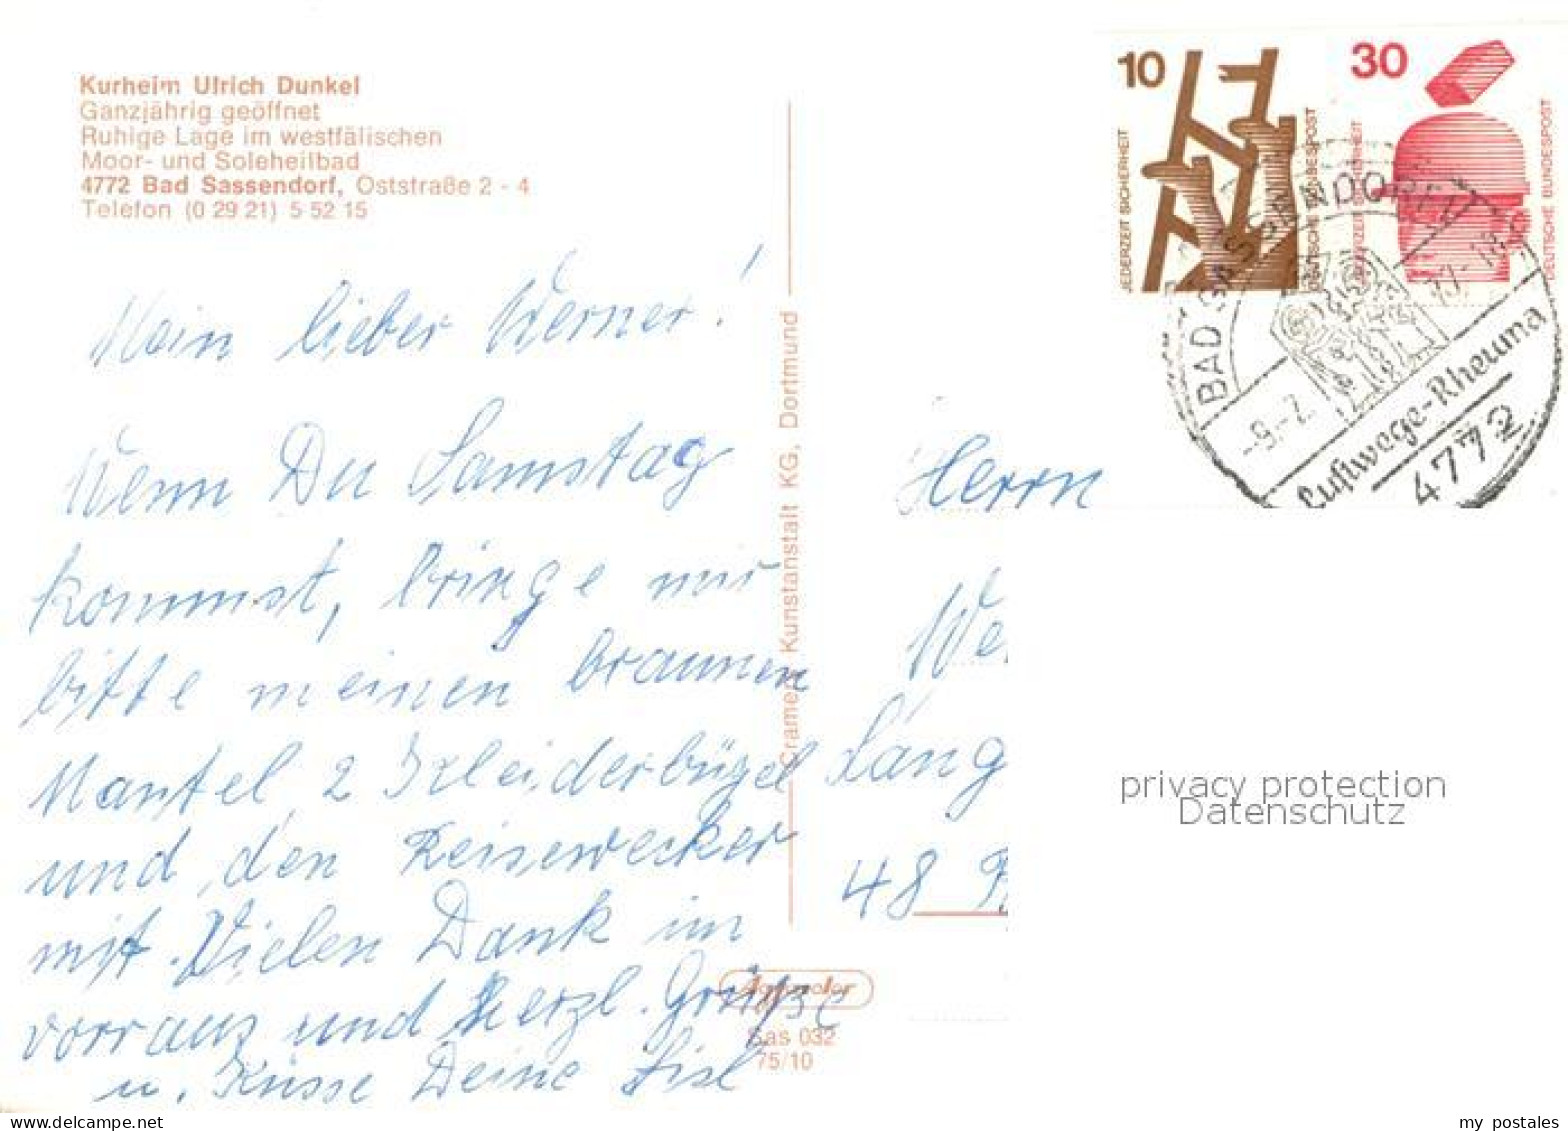 Kurheim Ulrich Dunkel
Ganzjährig geöffnet
Ruhige Lage im westfälischen
Moor- und Soleheilbad
4772 Bad Sassendorf, Oststraße 2 - 4
Telefon (0 29 21) 5 52 15
Mein lieber Werner!
Wenn Du Samstag
kommst, bringe mir
bitte meinen braunen
Mantel, 2 Kleiderbügel
und den Reisewecker
mit. Vielen Dank im
vorraus und Herzl. Grüße
u. Küsse Deine Lisl
Cramers Kunstanstalt KG, Dortmund
Sas 032
75/10
10
JEDERZEIT SICHERHEIT
DEUTSCHE BUNDESPOST
30
JEDERZEIT SICHERHEIT
DEUTSCHE BUNDESPOST
BAD SASSENDORF
-9.-7.
Luftwege-Rheuma
4772
Herrn
We
Lang
48
privacy protection
Datenschutz
my postales